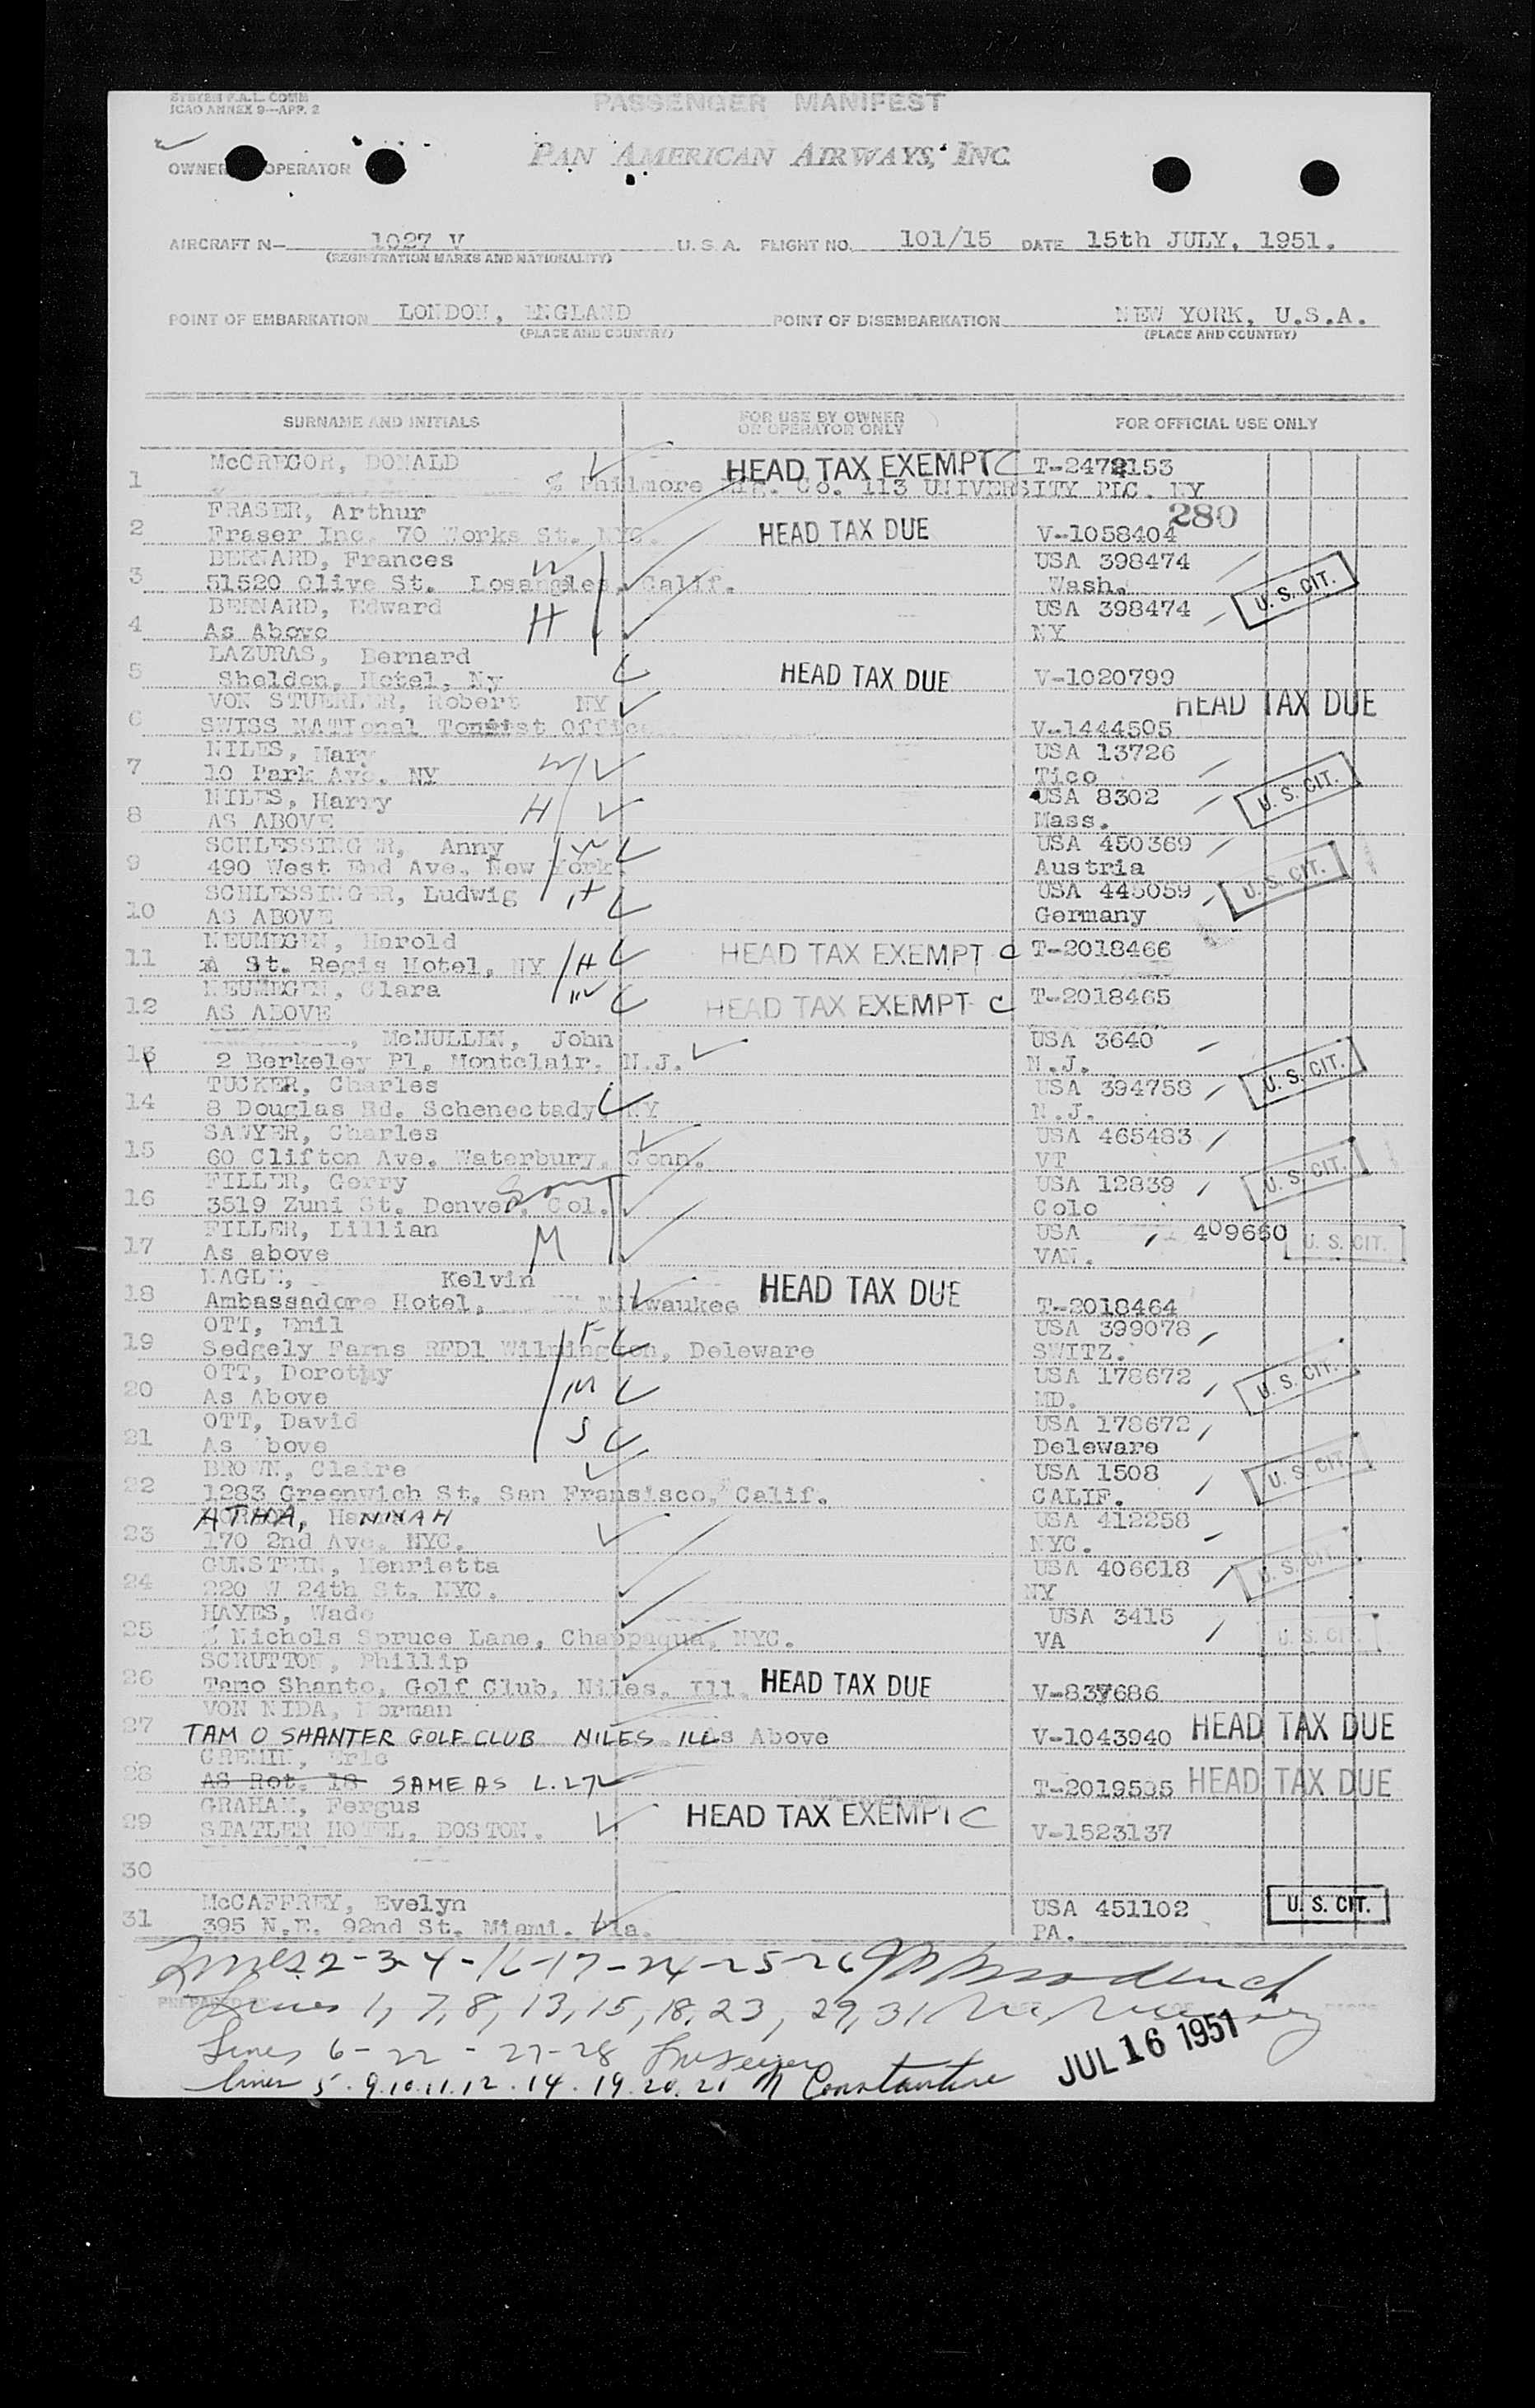 SYSTEM F.A.L. COMM
ICAO ANNEX 9—APP. 2
PASSENGER MANIFEST
OWNER OPERATOR
PAN AMERICAN AIRWAYS, INC.
AIRCRAFT N— 1027 V U. S. A. FLIGHT NO. 101/15 DATE 15th JULY, 1951.
(REGISTRATION MARKS AND NATIONALITY)
POINT OF EMBARKATION LONDON, ENGLAND POINT OF DISEMBARKATION NEW YORK, U.S.A.
(PLACE AND COUNTRY) (PLACE AND COUNTRY)
SURNAME AND INITIALS FOR USE BY OWNER OR OPERATOR ONLY FOR OFFICIAL USE ONLY
McGREGOR, DONALD HEAD TAX EXEMPT C T-2472153
1 % Philmore Mfg. Co. 113 UNIVERSITY PLC. NY
FRASER, Arthur 280
2 Fraser Inc. 70 Works St. NYC. HEAD TAX DUE V-1058404
BERNARD, Frances W USA 398474
3 51520 Olive St. Losangles, Calif. Wash. U. S. CIT.
BERNARD, Edward H USA 398474
4 As Above NY
LAZURAS, Bernard
5 Sheldon, Hotel, Ny HEAD TAX DUE V-1020799
VON STUERLER, Robert NY HEAD TAX DUE
6 SWISS NATIonal Tourist Office. V-1444505
NILES, Mary W USA 13726
7 10 Park Ave. NY Tico U. S. CIT.
NILES, Harry H USA 8302
8 AS ABOVE Mass.
SCHLESSINGER, Anny W USA 450369
9 490 West End Ave. New York. Austria U. S. CIT.
SCHLESSINGER, Ludwig H USA 445059
10 AS ABOVE Germany
NEUMEGEN, Harold HEAD TAX EXEMPT C T-2018466
11 St. Regis Hotel, NY H
NEUMEGEN, Clara W HEAD TAX EXEMPT C T-2018465
12 AS ABOVE
McMULLEN, John USA 3640
13 2 Berkeley Pl, Montclair, N.J. N.J. U. S. CIT.
TUCKER, Charles USA 394758
14 8 Douglas Rd. Schenectady NY N.J.
SAWYER, Charles USA 465483
15 60 Clifton Ave. Waterbury, Conn. VT U. S. CIT.
FILLER, Gerry Son USA 12839
16 3519 Zuni St. Denver, Col. Colo
FILLER, Lillian M USA 409660 U. S. CIT.
17 As above VAN.
NAGLE, Kelvin
18 Ambassadore Hotel, Milwaukee HEAD TAX DUE T-2018464
OTT, Emil F USA 399078
19 Sedgely Farns RFD1 Wilmington, Deleware SWITZ.
OTT, Dorothy M USA 178672 U. S. CIT.
20 As Above MD.
OTT, David S USA 178672
21 As bove Deleware
BROWN, Claire USA 1508 U. S. CIT.
22 1283 Greenwich St, San Fransisco, Calif. CALIF.
ATHA, HANNAH USA 412258
23 170 2nd Ave. NYC. NYC.
GUNSTEIN, Henrietta USA 406618 U. S. CIT.
24 220 W 24th St. NYC. NY
HAYES, Wade USA 3415
25 Nichols Spruce Lane, Chappaqua, NYC. VA U. S. CIT.
SCRUTTON, Phillip
26 Tamo Shanto, Golf Club, Niles, Ill. HEAD TAX DUE V-837686
VON NIDA, Norman
27 TAM O SHANTER GOLF CLUB NILES ILL As Above V-1043940 HEAD TAX DUE
CREMIN, Eric
28 AS Rot. 18 SAME AS L.27 T-2019535 HEAD TAX DUE
GRAHAM, Fergus HEAD TAX EXEMPT C
29 STATLER HOTEL, BOSTON. V-1523137
30
McCAFFREY, Evelyn USA 451102 U. S. CIT.
31 395 N.E. 92nd St. Miami. Fla. PA.
Lines 2-3-4-16-17-24-25-26
PREPARED BY
Lines 1, 7, 8, 13, 15, 18, 23, 29, 31
Lines 6-22-27-28
JUL 16 1951
lines 5.9.10.11.12.14.19.20.21 M Constantine